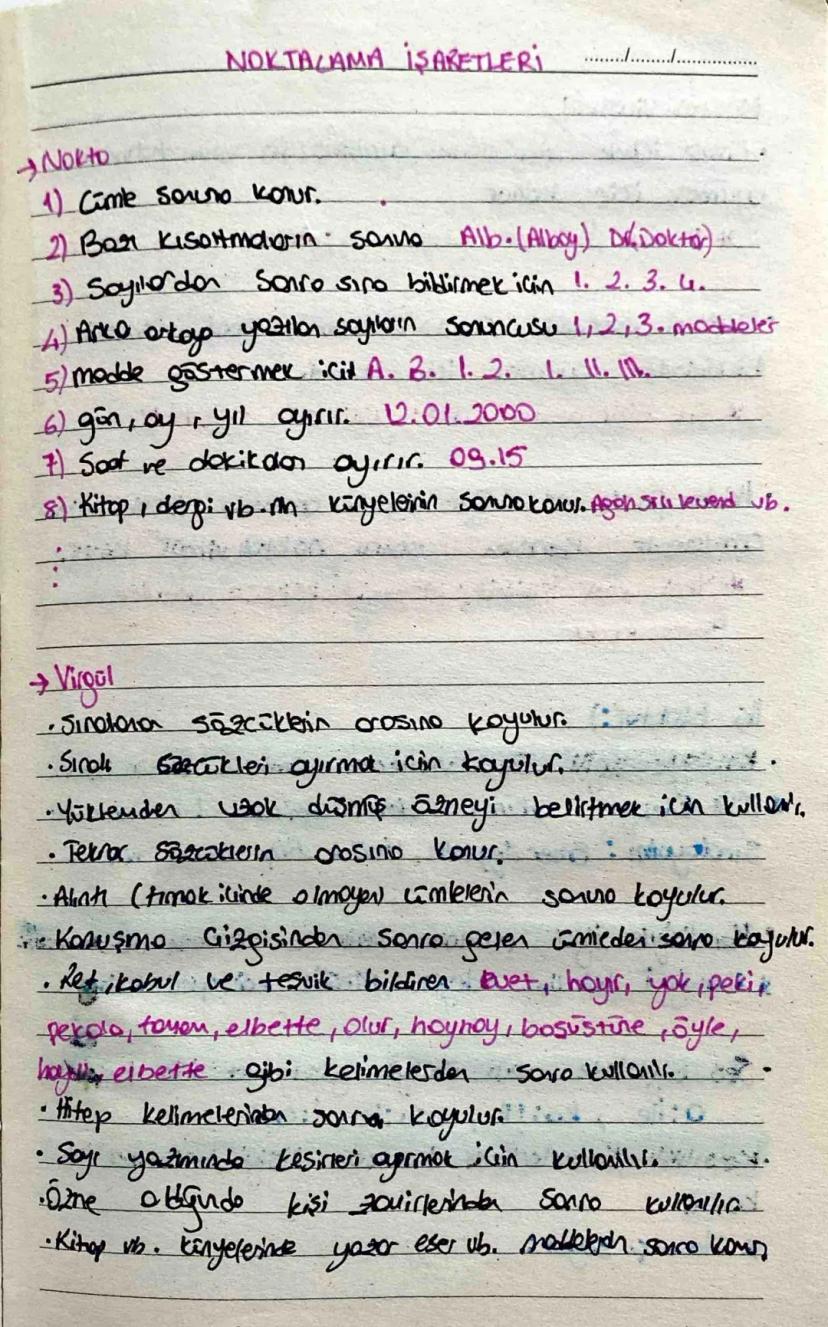 NOKTALAMA İŞARETLERİ ......../......../................
→ Nokta
1) Cümle sonuna konur.
2) Bazı kısaltmaların sonuna Alb. (Albay) Dr.(Doktor)
3) Sayılardan sonra sıra bildirmek için 1. 2. 3. 4.
4) Arka arkaya yazılan sayıların sonuncusu 1, 2, 3. maddeler
5) madde göstermek için A. B. 1. 2. I. II. III.
6) gün, ay, yıl ayırır. 12.01.2000
7) Saat ve dakikaları ayırır. 09.15
8) Kitap, dergi vb. nin künyelerinin sonuna konur. Agah Sırrı Levend vb.
→ Virgül
• Sıralanan sözcüklerin arasına koyulur.
• Sıralı sözcükleri ayırmak için koyulur.
• Yüklemden uzak düşmüş özneyi belirtmek için kullanılır.
• Tekrar sözcüklerin arasına konur.
• Alıntı (tırnak içinde olmayan) cümlelerin sonuna koyulur.
• Konuşma çizgisinden sonra gelen cümleden sonra koyulur.
• Ret, kabul ve teşvik bildiren evet, hayır, yok, peki,
pekala, tamam, elbette, olur, hayhay, başüstüne, öyle,
elbette gibi kelimelerden sonra kullanılır.
• Hitap kelimelerinden sonra koyulur.
• Sayı yazımında kesirleri ayırmak için kullanılır.
• Özne olduğunda kişi zamirlerinden sonra kullanılır
• Kitap vb. künyelerinde yazar eser vb. maddelerden sonra konur